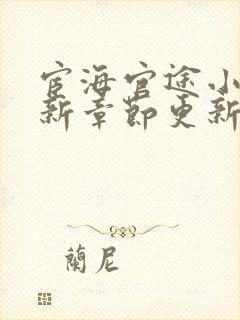 宦海官途小
新章節更新
蘭尼